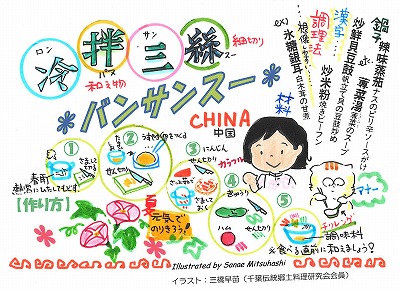 冷拌三絲
ロン
バヌ
サン
スー
和え物
細切り
*バンサンスー*
CHINA
中国
鍋子
辣味蒸茄
ナスのピリ辛ソースがけ
炒鮮貝豆鼓
帆立て貝の豆鼓炒め
蓴菜湯
蓴菜のスープ
炒米粉
焼きビーフン
漢字…
調理法
…想像しよう…
ex)
氷糖銀耳
白木耳の甘煮
材料
【作り方】
①
春雨
さまして切る
熱湯にひたしてもどす
②
たまご
うす焼卵をつくる
せん切り
③
にんじん
せん切り
カラフル
さっと茹で
さましておく
④
きゅうり
ハム
せん切り
⑤
チリレンゲ
調味料
※食べる直前に和えましょう?
マナー
元気で
のりきろう!
Illustrated by Sanae Mitsuhashi
イラスト:三橋早苗(千葉伝統郷土料理研究会会員)